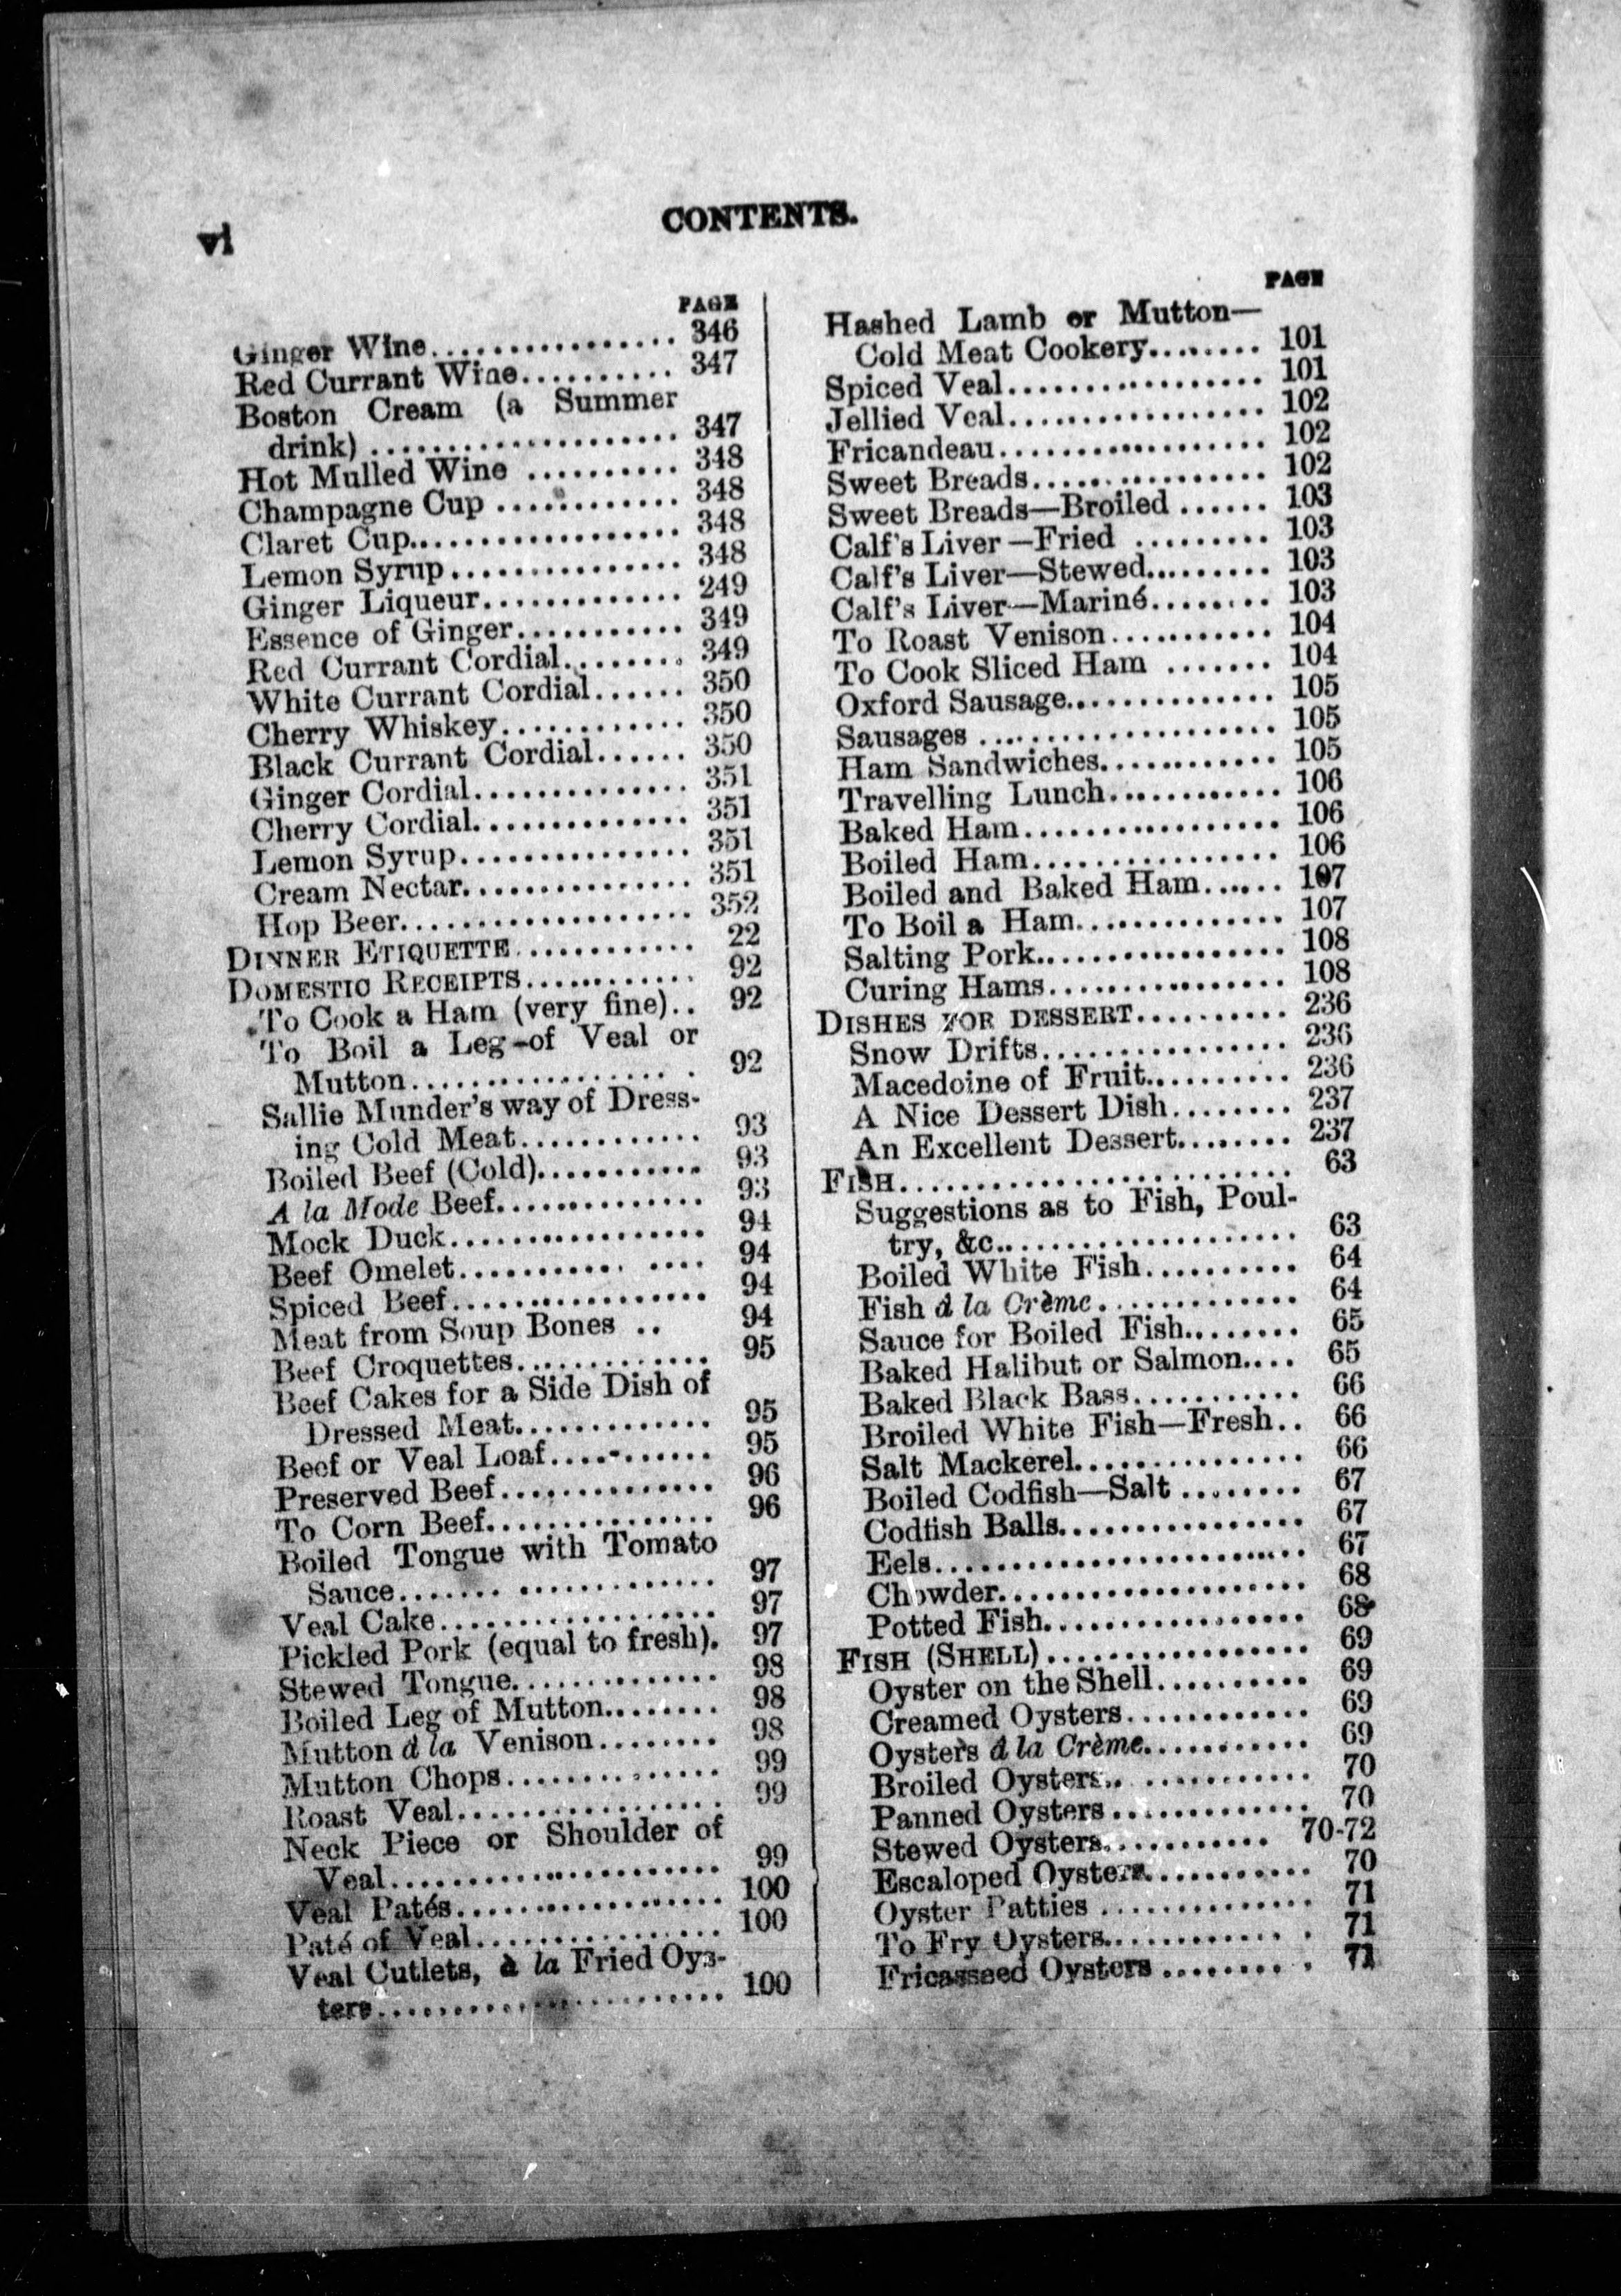 vi
CONTENTS.
PAGE
Ginger Wine................. 346
Red Currant Wine........... 347
Boston Cream (a Summer
drink) ..................... 347
Hot Mulled Wine .......... 348
Champagne Cup ............ 348
Claret Cup................... 348
Lemon Syrup............... 348
Ginger Liqueur............. 249
Essence of Ginger........... 349
Red Currant Cordial........ 349
White Currant Cordial...... 350
Cherry Whiskey............. 350
Black Currant Cordial...... 350
Ginger Cordial.............. 351
Cherry Cordial.............. 351
Lemon Syrup............... 351
Cream Nectar............... 351
Hop Beer................... 352
DINNER ETIQUETTE............ 22
DOMESTIC RECEIPTS............ 92
To Cook a Ham (very fine).. 92
To Boil a Leg of Veal or
Mutton.................. 92
Sallie Munder's way of Dress-
ing Cold Meat............ 93
Boiled Beef (Cold)........... 93
A la Mode Beef.............. 93
Mock Duck................. 94
Beef Omelet............... 94
Spiced Beef................. 94
Meat from Soup Bones .. 94
Beef Croquettes............. 95
Beef Cakes for a Side Dish of
Dressed Meat............. 95
Beef or Veal Loaf........... 95
Preserved Beef.............. 96
To Corn Beef............... 96
Boiled Tongue with Tomato
Sauce.................... 97
Veal Cake.................. 97
Pickled Pork (equal to fresh). 97
Stewed Tongue.............. 98
Boiled Leg of Mutton........ 98
Mutton à la Venison........ 98
Mutton Chops.............. 99
Roast Veal................. 99
Neck Piece or Shoulder of
Veal..................... 99
Veal Patés................. 100
Paté of Veal................ 100
Veal Cutlets, à la Fried Oys-
ters....................... 100
PAGE
Hashed Lamb or Mutton—
Cold Meat Cookery........ 101
Spiced Veal................. 101
Jellied Veal................. 102
Fricandeau.................. 102
Sweet Breads................ 102
Sweet Breads—Broiled ...... 103
Calf's Liver—Fried ......... 103
Calf's Liver—Stewed......... 103
Calf's Liver—Mariné........ 103
To Roast Venison........... 104
To Cook Sliced Ham ....... 104
Oxford Sausage.............. 105
Sausages ................... 105
Ham Sandwiches............ 105
Travelling Lunch............ 106
Baked Ham................. 106
Boiled Ham................ 106
Boiled and Baked Ham...... 107
To Boil a Ham.............. 107
Salting Pork................. 108
Curing Hams................ 108
DISHES FOR DESSERT.......... 236
Snow Drifts................. 236
Macedoine of Fruit.......... 236
A Nice Dessert Dish........ 237
An Excellent Dessert........ 237
FISH......................... 63
Suggestions as to Fish, Poul-
try, &c.................... 63
Boiled White Fish.......... 64
Fish à la Crème............. 64
Sauce for Boiled Fish........ 65
Baked Halibut or Salmon.... 65
Baked Black Bass........... 66
Broiled White Fish—Fresh.. 66
Salt Mackerel............... 66
Boiled Codfish—Salt ........ 67
Codfish Balls................ 67
Eels........................ 67
Chowder.................... 68
Potted Fish................. 68
FISH (SHELL)................. 69
Oyster on the Shell.......... 69
Creamed Oysters............ 69
Oysters à la Crème........... 69
Broiled Oysters.. ........... 70
Panned Oysters............. 70
Stewed Oysters........... 70-72
Escaloped Oysters........... 70
Oyster Patties .............. 71
To Fry Oysters............. 71
Fricasseed Oysters ......... 71